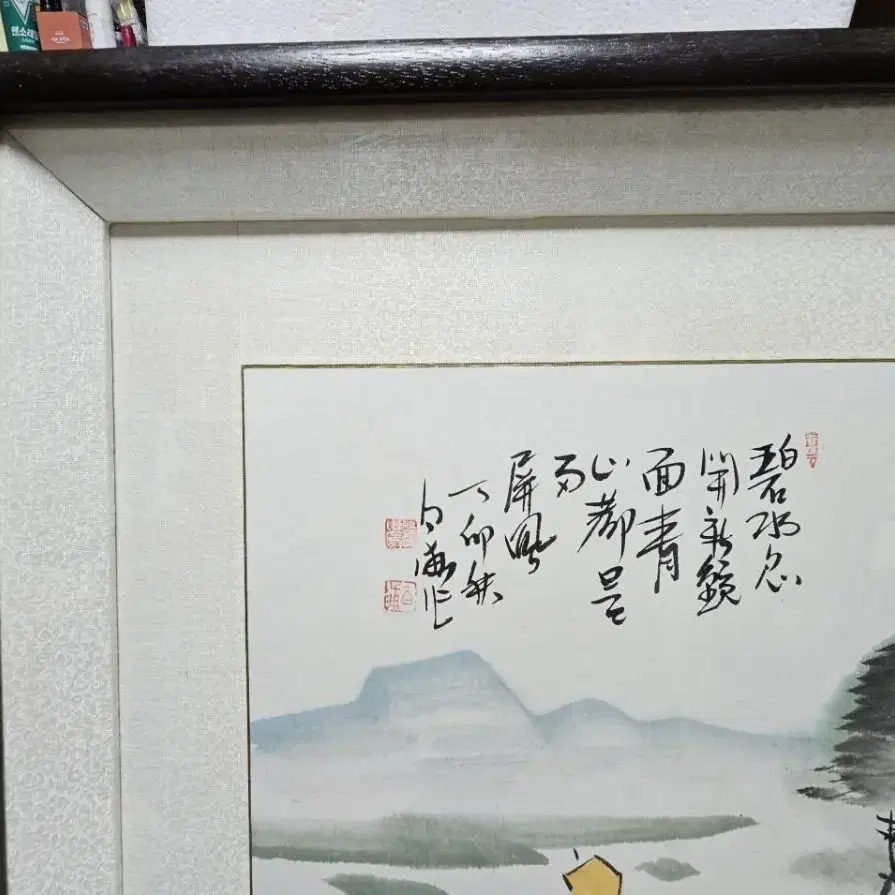 맨소래
碧水忽
開新鏡
面青
山都是
好
屏風
丁卯秋
白海作